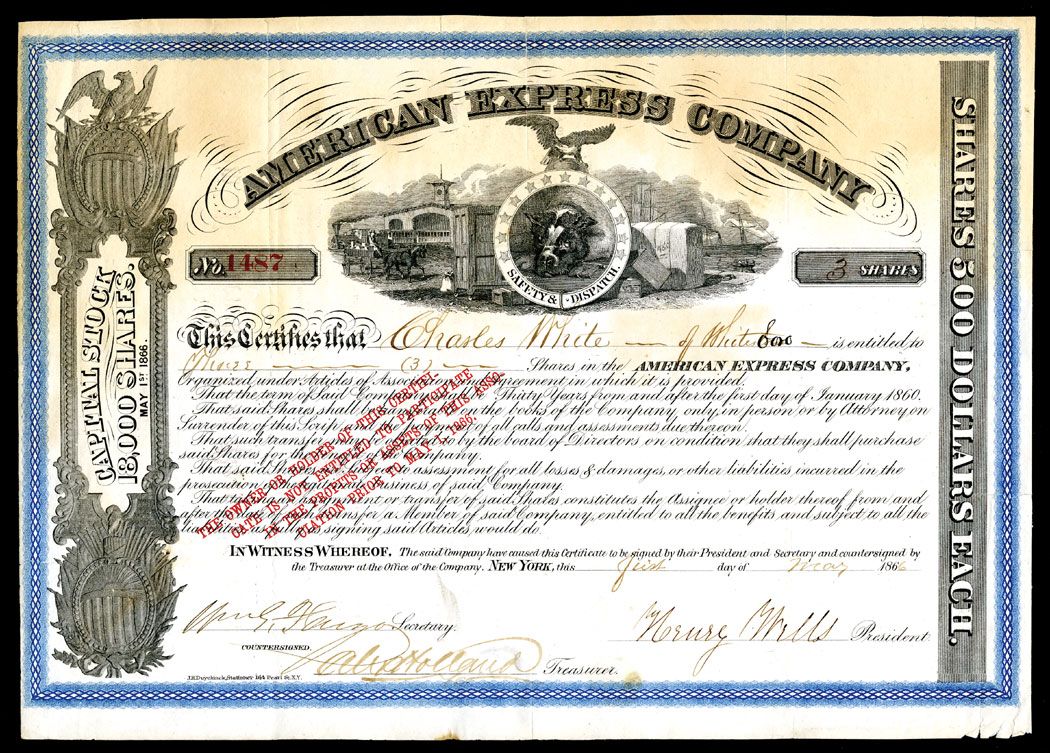 AMERICAN EXPRESS COMPANY
SAFETY & DISPATCH.
No. 1487
3 SHARES
CAPITAL STOCK
18,000 SHARES.
MAY 1ST 1866.
SHARES 500 DOLLARS EACH.
This Certifies that Charles White of White is entitled to
Three (3) Shares in the AMERICAN EXPRESS COMPANY,
Organized under Articles of Association agreement in which it is provided,
That the term of said Thirty Years from and after the first day of January 1860.
That said Shares shall the books of the Company only, in person or by Attorney on
Surrender of this Scrip of all calls and assessments due thereon.
That such transfer to by the board of Directors on condition that they shall purchase
said Shares for the company.
That said Shares assessment for all losses & damages, or other liabilities incurred in the
prosecution business of said Company.
That or transfer of said Shares constitutes the Assignee or holder thereof from and
after a Member of said Company, entitled to all the benefits and subject to all the
signing said Articles, would do.
THE OWNER OR HOLDER OF THIS CERTIFI-
CATE IS NOT ENTITLED TO PARTICIPATE
IN THE PROFITS OR ASSETS OF THIS ASSO-
CIATION PRIOR TO MAY 1, 1866.
IN WITNESS WHEREOF, The said Company have caused this Certificate to be signed by their President and Secretary and countersigned by
the Treasurer at the Office of the Company. NEW YORK, this first day of May 1866
Wm G. Fargo Secretary.
Henry Wells President.
COUNTERSIGNED.
Alex Holland Treasurer.
J.H. Duyckinck, Stationer 164 Pearl St. N.Y.